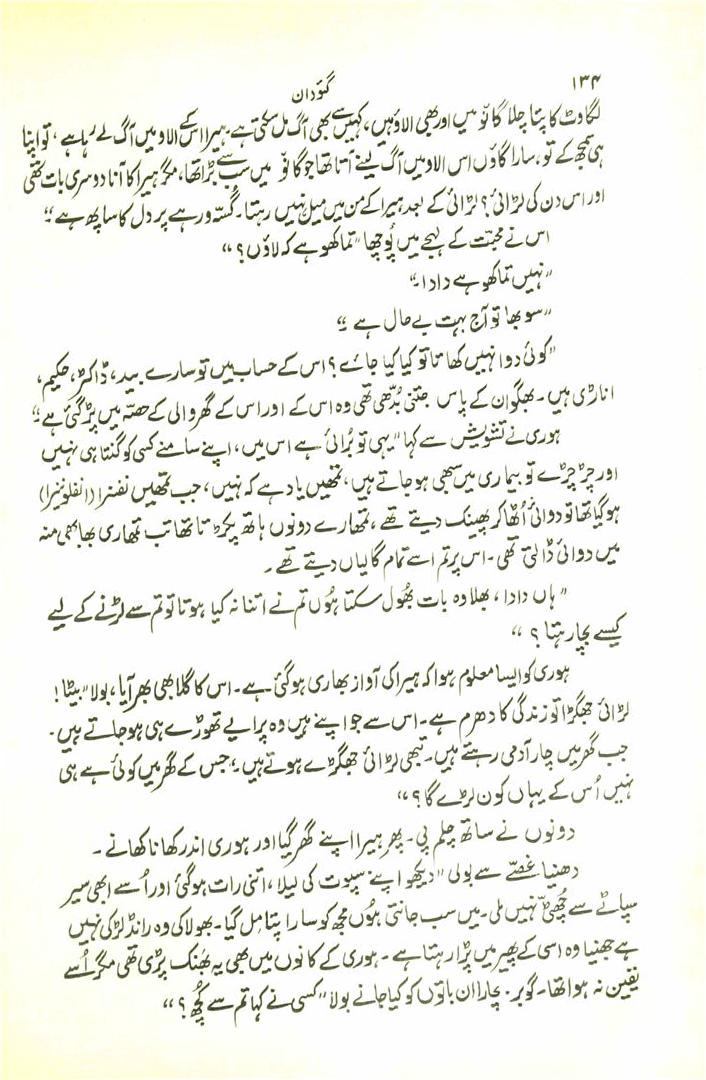 ۱۳۴
گئودان
لگاوٹ کا پتا چلا گانوّ میں اور بھی الاؤ ہیں، کہیں سے بھی آگ مل سکتی ہے۔ ہیرا اس کے الاؤ میں آگ لے رہا ہے، تو اپنا
ہی سمجھ کے تو، سارا گاؤں اس الاؤ میں آگ لینے آتا تھا جو گانوّ میں سب سے بڑا تھا، مگر ہیرا کا آنا دوسری بات تھی
اور اس دن کی لڑائی؟ لڑائی کے بعد ہیرا کے من میں میل نہیں رہتا۔ گسّہ ور ہے پر دل کا ساپھ ہے“
اس نے محبّت کے لہجے میں پوچھا ”تماکھو ہے کہ لاؤں؟“
”نہیں تماکھو ہے دادا۔“
”سوبھا تو آج بہت بے حال ہے۔“
”کوئی دوا نہیں کھاتا تو کیا کیا جائے؟ اس کے حساب میں تو سارے بید، ڈاکٹر، حکیم،
اناڑی ہیں۔ بھگوان کے پاس جتنی بُدّھی تھی وہ اس کے اور اس کے گھر والی کے حصّہ میں پڑ گئی ہے“
ہوری نے تشویش سے کہا ”یہی تو بُرائی ہے اس میں، اپنے سامنے کسی کو گنتا ہی نہیں
اور چڑچڑے تو بیماری میں سبھی ہو جاتے ہیں، تمھیں یاد ہے کہ نہیں، جب تمھیں نفنزا (انفلوئنزا)
ہو گیا تھا تو دوائی اُٹھا کر پھینک دیتے تھے، تمھارے دونوں ہاتھ پکڑتا تھا تب تمھاری بھابھی منہ
میں دوائی ڈالتی تھی۔ اس پر تم اسے تمام گالیاں دیتے تھے۔
”ہاں دادا، بھلا وہ بات بھُول سکتا ہُوں تم نے اتنا نہ کیا ہوتا تو تم سے لڑنے کے لیے
کیسے بچا رہتا؟“
ہوری کو ایسا معلوم ہوا کہ ہیرا کی آواز بھاری ہو گئی ہے۔ اس کا گلا بھی بھر آیا، بولا ”بیٹا!
لڑائی جھگڑا تو زندگی کا دھرم ہے۔ اس سے جو اپنے ہیں وہ پرایے تھوڑے ہی ہو جاتے ہیں۔
جب گھر میں چار آدمی رہتے ہیں۔ تبھی لڑائی جھگڑے ہوتے ہیں؛ جس کے گھر میں کوئی ہے ہی
نہیں اُس کے یہاں کون لڑے گا؟“
دونوں نے ساتھ چلم پی۔ پھر ہیرا اپنے گھر گیا اور ہوری اندر کھانا کھانے۔
دھنیا غصّے سے بولی ”دیکھو اپنے سپوت کی لیلا، اتنی رات ہو گئی اور اُسے ابھی سیر
سپاٹے سے چھُٹّی نہیں ملی۔ میں سب جانتی ہُوں مجھ کو سارا پتا مل گیا۔ بھولا کی وہ رانڈ لڑکی نہیں
ہے جھنیا وہ اسی کے پھیر میں پڑا رہتا ہے۔ ہوری کے کانوں میں بھی یہ بھنک پڑی تھی مگر اُسے
یقین نہ ہوا تھا۔ گوبر۔ بچارا ان باتوں کو کیا جانے بولا ”کسی نے کہا تم سے کُچھ؟“